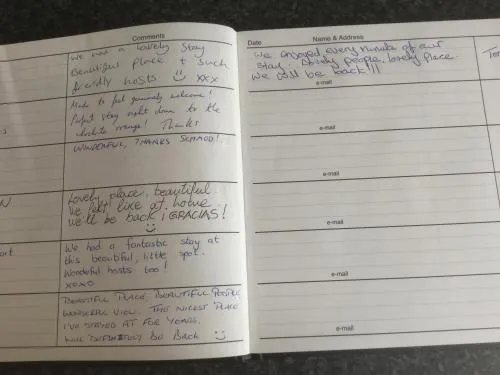 Comments
We had a lovely stay
Beautiful place + such
friendly hosts xxx
Made to feel genuinely welcome!
Perfect stay right down to the
chocolate orange! Thanks
WONDERFUL, THANKS
Lovely place, beautiful.
We felt like at home
we'll be back ¡GRACIAS!
We had a fantastic stay at
this beautiful, little spot.
Wonderful hosts too!
xoxo
BEAUTIFUL PLACE, BEAUTIFUL PEOPLE,
WONDERFUL VIEW. THE NICEST PLACE
I'VE STAYED AT FOR YEARS.
WILL DEFINITELY BE BACK
Date Name & Address
We enjoyed every minute of our
stay. Lovely people, lovely place.
We will be back!!!
e-mail
e-mail
e-mail
e-mail
e-mail
e-mail